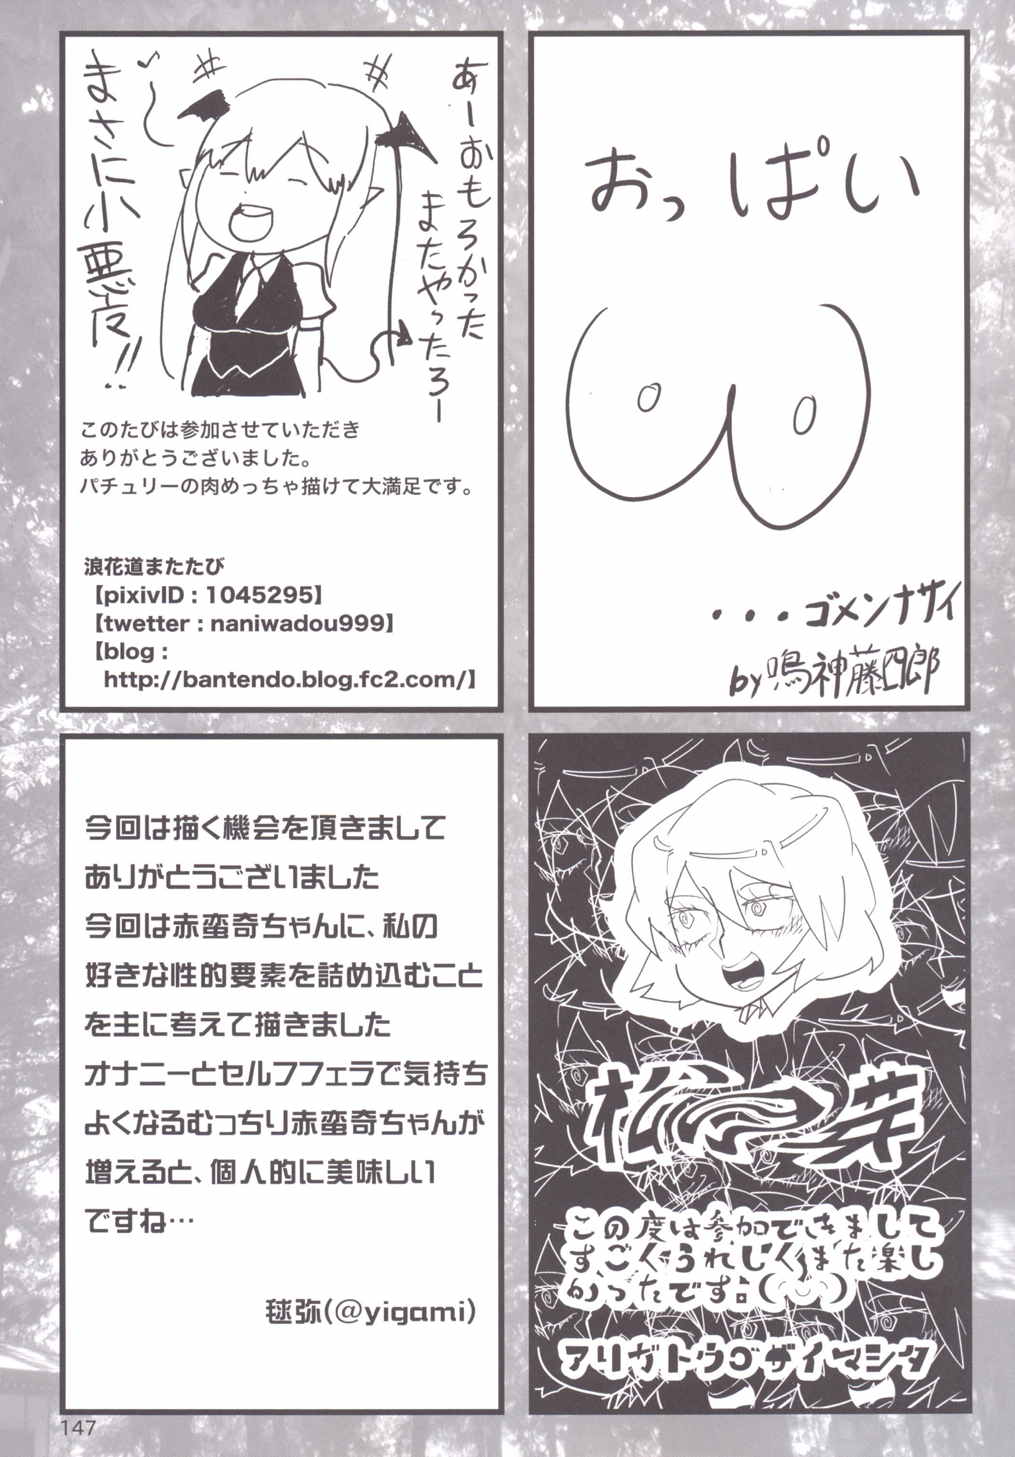 あーおもろかった
またやったろー
まさに小悪夜!!
このたびは参加させていただき
ありがとうございました。
パチュリーの肉めっちゃ描けて大満足です。
浪花道またたび
【pixivID : 1045295】
【twetter : naniwadou999】
【blog :
http://bantendo.blog.fc2.com/】
おっぱい
・・・ゴメンナサイ
by 鳴神藤四郎
今回は描く機会を頂きまして
ありがとうございました
今回は赤蛮奇ちゃんに、私の
好きな性的要素を詰め込むこと
を主に考えて描きました
オナニーとセルフフェラで気持ち
よくなるむっちり赤蛮奇ちゃんが
増えると、個人的に美味しい
ですね…
毬弥(@yigami)
この度は参加できまして
すごくうれしくまた楽し
かったです:(´◡`)
アリガトウゴザイマシタ
147